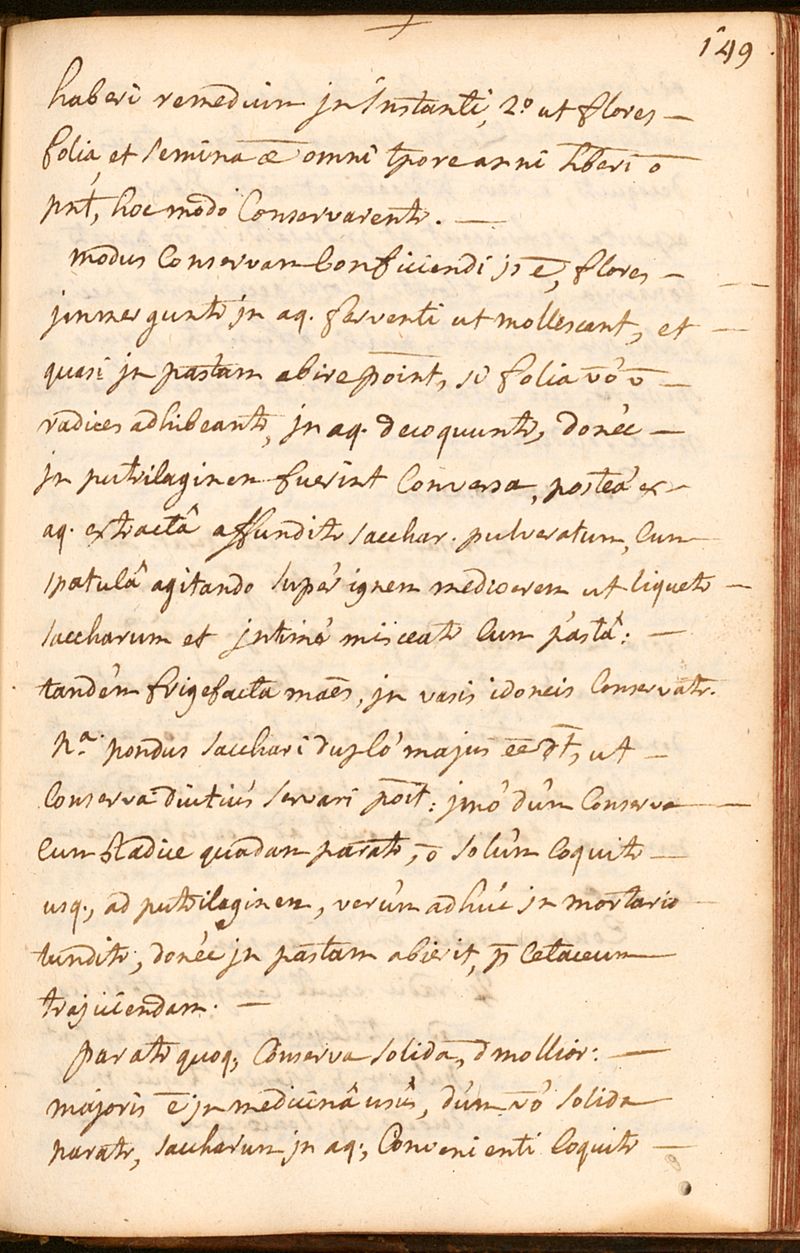 149
haberi remedium jn Instanti, 2.º ut flores
folia, et semina æ omni tp̄ore anni h̄beri ō
pn̄t, hoc modo Conservarentr.
modus Conservam Conficiendi js ē, flores
jmmerguntr jn aq. ferventi ut mollescant, et
quasi jn pastam abire point, si folia vō v̄
radices adhibeantr, jn aq. decoquuntr, donèc
jn putrilaginem fuerint Conversa, posteà ex
aq. extractâ affunditr sacchar. pulveratum, Cum
spatulâ agitando supèr ignem mediocrem ut liquetr
saccharum et jntimè misceatr Cum pastâ:
tandèm frigefacta maēs, jn vasis idoneis Conservatr.
Nª. pondus sacchari duplò majus ēē dt, ut
Conserva diutiùs servari poīt: jmò dùm Conserva
Cum Radice quadam paratr, ō solùm Coquitr
usq., ad putrilaginem, verùm adhùc jn mortario
tunditr, donèc jn pastam abierit, p̄ Cetaceum
trajiciendam.
paratr quoq, Conserva solida, d mollior:
majoris ē jn medicinâ usûs, dùm vō solida
paratr, saccharum jn aq., Convenienti Coquitr